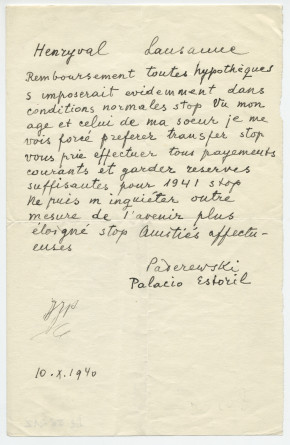 Henryval Lausanne
Remboursement toutes hypothèques
s imposerait evidemment dans
conditions normales stop Vu mon
age et celui de ma soeur je me
vois forcé preferer transfer stop
vous prie effectuer tous payements
courants et garder reserves
suffisantes pour 1941 stop
Ne puis m inquiéter outre
mesure de l'avenir plus
éloigné stop Amitiés affectu-
euses
Paderewski
Palacio Estoril
10.X.1940